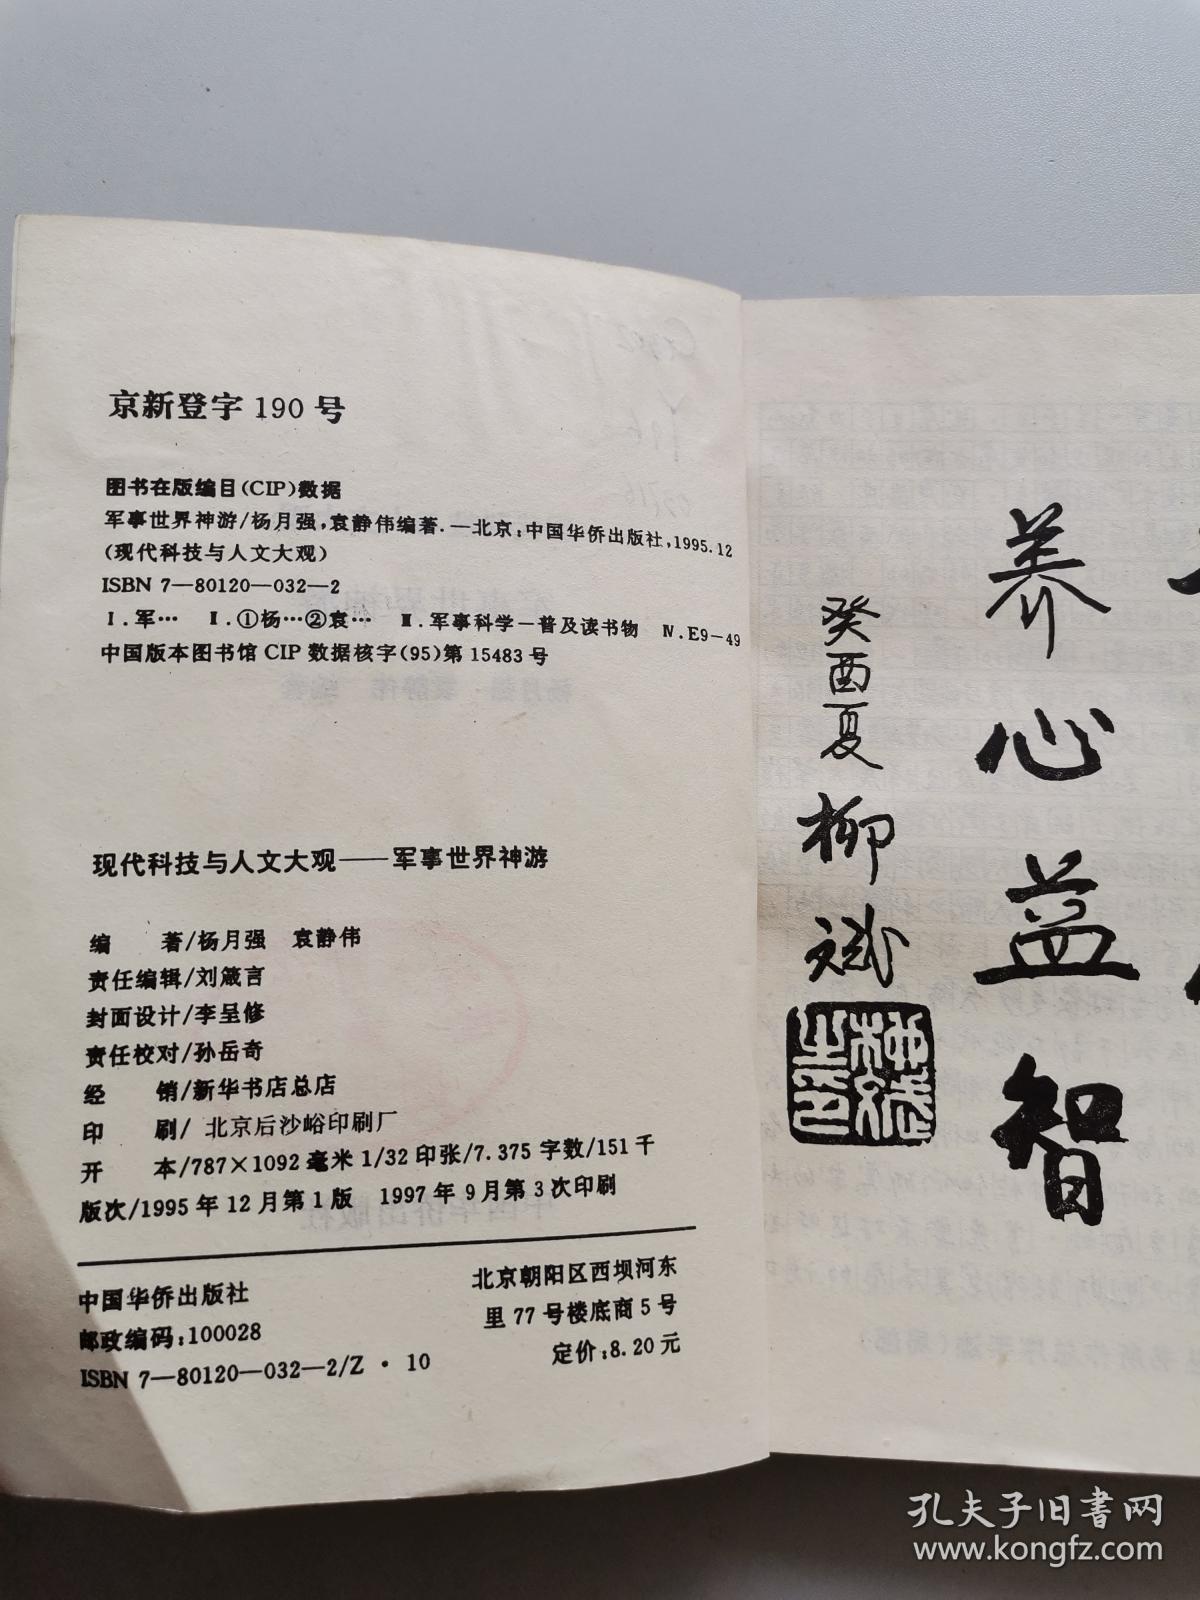 京新登字190号
图书在版编目(CIP)数据
军事世界神游/杨月强,袁静伟编著.—北京:中国华侨出版社,1995.12
(现代科技与人文大观)
ISBN 7—80120—032—2
Ⅰ.军… Ⅱ.①杨…②袁… Ⅲ.军事科学—普及读书物 Ⅳ.E9-49
中国版本图书馆CIP数据核字(95)第15483号
现代科技与人文大观——军事世界神游
编 著/杨月强 袁静伟
责任编辑/刘箴言
封面设计/李呈修
责任校对/孙岳奇
经 销/新华书店总店
印 刷/ 北京后沙峪印刷厂
开 本/787×1092毫米1/32印张/7.375字数/151千
版次/1995年12月第1版 1997年9月第3次印刷
中国华侨出版社
邮政编码:100028
ISBN 7—80120—032—2/Z·10
北京朝阳区西坝河东
里77号楼底商5号
定价:8.20元
养心益智
癸酉夏
柳斌
孔夫子旧书网
www.kongfz.com